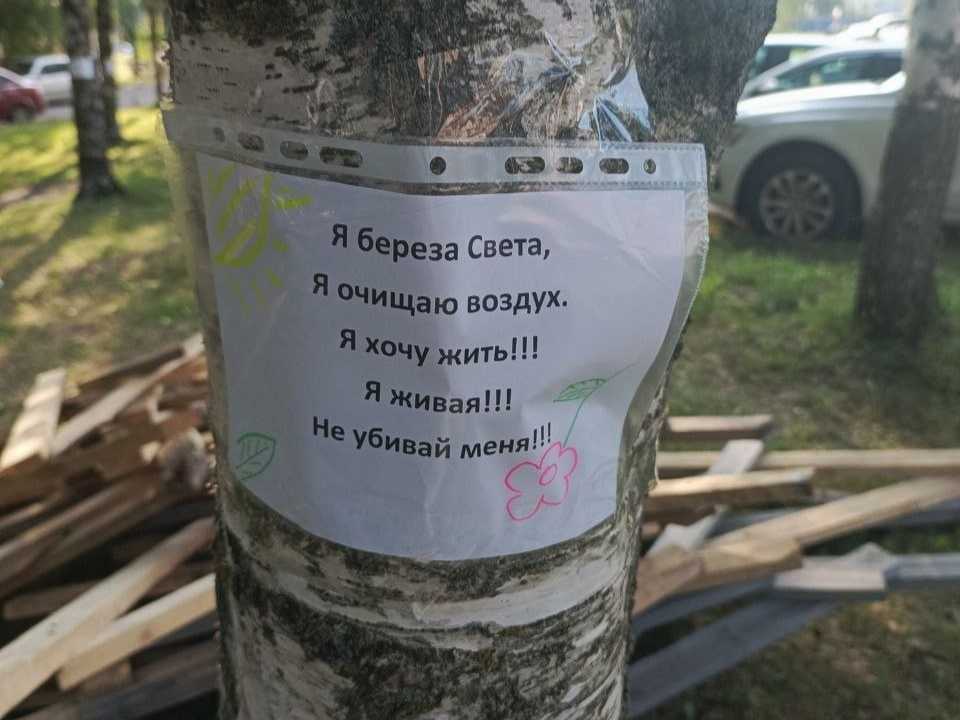 Я береза Света,
Я очищаю воздух.
Я хочу жить!!!
Я живая!!!
Не убивай меня!!!